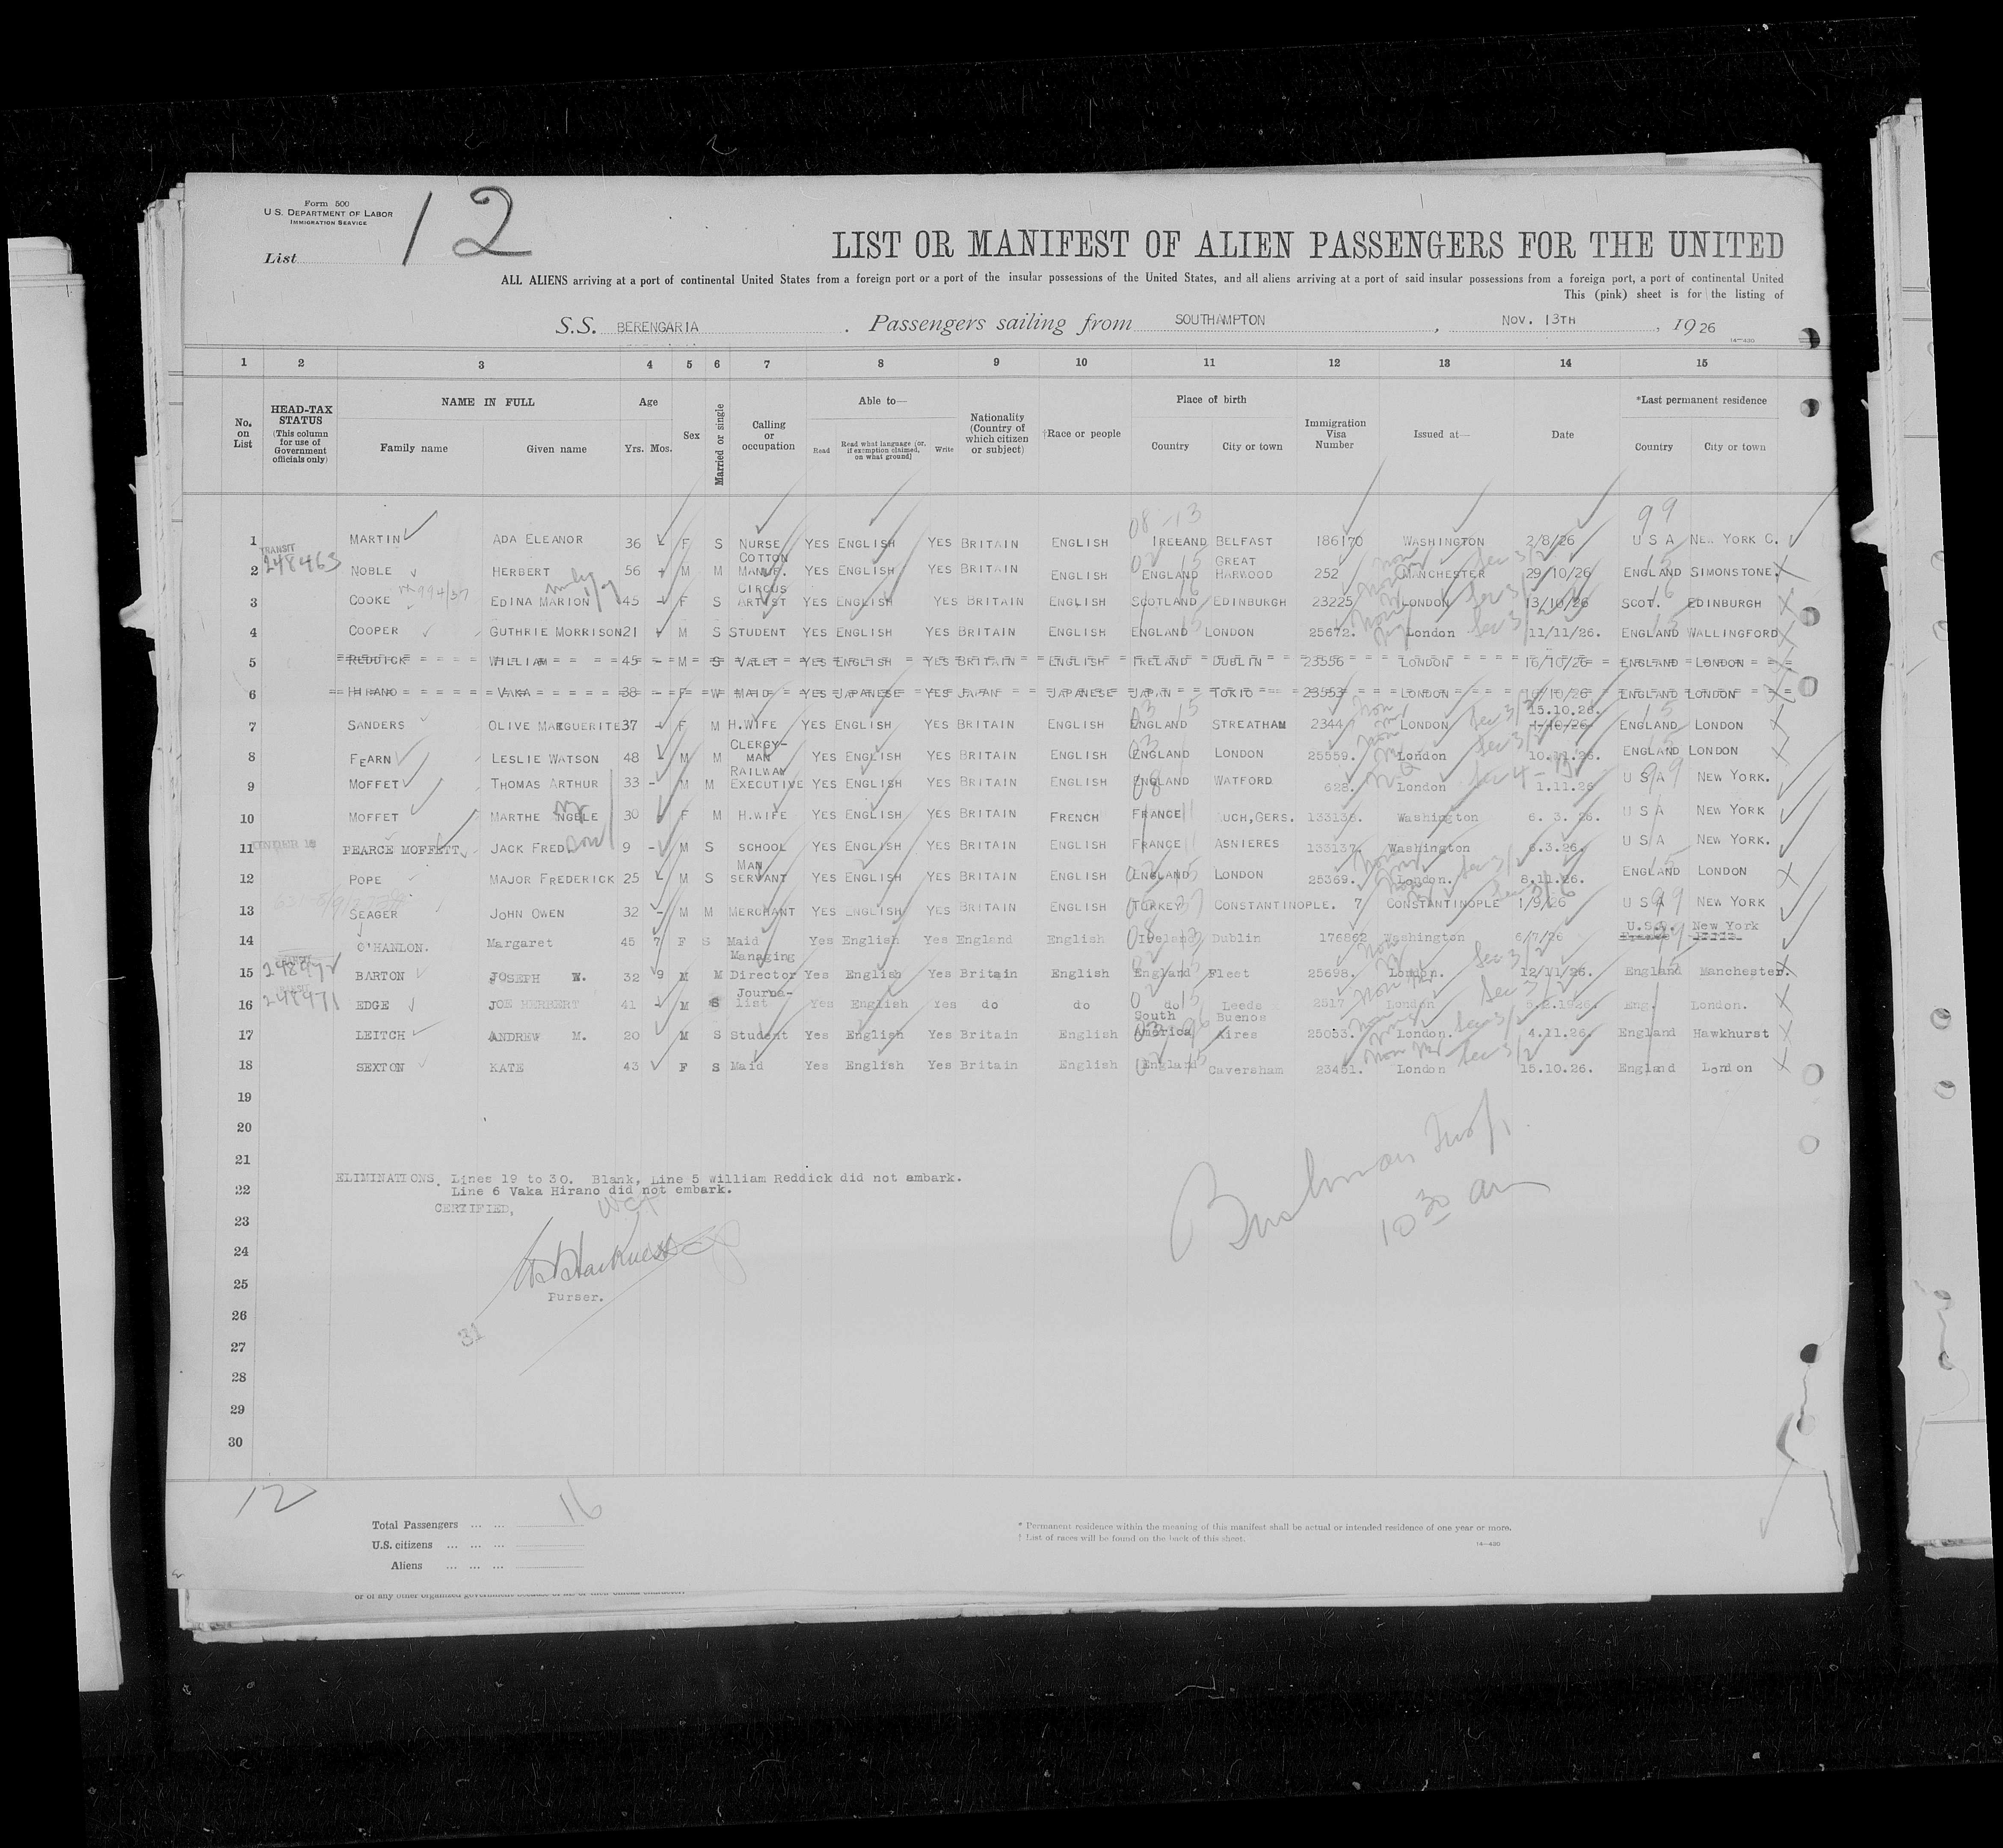 Form 500
U.S. DEPARTMENT OF LABOR
IMMIGRATION SERVICE
List 12
LIST OR MANIFEST OF ALIEN PASSENGERS FOR THE UNITED
ALL ALIENS arriving at a port of continental United States from a foreign port or a port of the insular possessions of the United States, and all aliens arriving at a port of said insular possessions from a foreign port, a port of continental United
This (pink) sheet is for the listing of
S.S. BERENGARIA . Passengers sailing from SOUTHAMPTON , NOV. 13TH , 19 26
14-430
1 2 3 4 5 6 7 8 9 10 11 12 13 14 15
No. on List HEAD-TAX STATUS (This column for use of Government officials only) NAME IN FULL Family name Given name Age Yrs. Mos. Sex Married or single Calling or occupation Able to— Read Read what language (or, if exemption claimed, on what ground) Write Nationality (Country of which citizen or subject) †Race or people Place of birth Country City or town Immigration Visa Number Issued at— Date *Last permanent residence Country City or town
1 MARTIN ADA ELEANOR 36 F S NURSE YES ENGLISH YES BRITAIN ENGLISH IRELAND BELFAST 186170 WASHINGTON 2/8/26 U S A NEW YORK C.
2 TRANSIT 248463 NOBLE HERBERT 56 M M COTTON MANUF. YES ENGLISH YES BRITAIN ENGLISH ENGLAND GREAT HARWOOD 252 MANCHESTER 29/10/26 ENGLAND SIMONSTONE.
3 COOKE EDINA MARION 45 F S CIRCUS ARTIST YES ENGLISH YES BRITAIN ENGLISH SCOTLAND EDINBURGH 23225 LONDON 13/10/26 SCOT. EDINBURGH
4 COOPER GUTHRIE MORRISON 21 M S STUDENT YES ENGLISH YES BRITAIN ENGLISH ENGLAND LONDON 25672. London 11/11/26. ENGLAND WALLINGFORD
5 REDDICK WILLIAM 45 M S VALET YES ENGLISH YES BRITAIN ENGLISH IRELAND DUBLIN 23556 LONDON 16/10/26 ENGLAND LONDON
6 HIRANO VAKA 38 F W MAID YES JAPANESE YES JAPAN JAPANESE JAPAN TOKIO 23553 LONDON 16/10/26 ENGLAND LONDON
7 SANDERS OLIVE MARGUERITE 37 F M H.WIFE YES ENGLISH YES BRITAIN ENGLISH ENGLAND STREATHAM 2344 LONDON 15.10.26. ENGLAND LONDON
8 FEARN LESLIE WATSON 48 M M CLERGY-MAN YES ENGLISH YES BRITAIN ENGLISH ENGLAND LONDON 25559. London 10.11.26. ENGLAND LONDON
9 MOFFET THOMAS ARTHUR 33 - M M RAILWAY EXECUTIVE YES ENGLISH YES BRITAIN ENGLISH ENGLAND WATFORD 628. London 1.11.26 U S A NEW YORK.
10 MOFFET MARTHE ANGELE 30 F M H.WIFE YES ENGLISH YES BRITAIN FRENCH FRANCE AUCH,GERS. 133138. Washington 6. 3. 26. U S A NEW YORK
11 UNDER 16 PEARCE MOFFETT JACK FRED. 9 - M S SCHOOL YES ENGLISH YES BRITAIN ENGLISH FRANCE ASNIERES 133137. Washington 6.3.26. U S A NEW YORK.
12 POPE MAJOR FREDERICK 25 M S MAN SERVANT YES ENGLISH YES BRITAIN ENGLISH ENGLAND LONDON 25369. London. 8.11.26. ENGLAND LONDON
13 SEAGER JOHN OWEN 32 - M M MERCHANT YES ENGLISH YES BRITAIN ENGLISH TURKEY CONSTANTINOPLE. 7 CONSTANTINOPLE 1/9/26 U S A NEW YORK
14 O'HANLON. Margaret 45 7 F S Maid Yes English Yes England English Ireland Dublin 176862 Washington 6/7/26 U.S.A. New York
15 248972 BARTON JOSEPH W. 32 9 M M Managing Director Yes English Yes Britain English England Fleet 25698. London. 12/11/26. England Manchester.
16 TRANSIT 248971 EDGE JOE HERBERT 41 - M S Journa-list Yes English Yes do do do Leeds 2517 London 5.2.1926. Eng. London.
17 LEITCH ANDREW M. 20 M S Student Yes English Yes Britain English South America Buenos Aires 25053. London. 4.11.26. England Hawkhurst
18 SEXTON KATE 43 F S Maid Yes English Yes Britain English England Caversham 23451. London 15.10.26. England London
19
20
21
ELIMINATIONS. Lines 19 to 30. Blank, Line 5 William Reddick did not embark.
22 Line 6 Vaka Hirano did not embark.
CERTIFIED,
23
24
25
Purser.
26
27
28
29
30
31
10 30 am
12
16
Total Passengers ... ...
U.S. citizens ... ... ...
Aliens ... ... ...
* Permanent residence within the meaning of this manifest shall be actual or intended residence of one year or more.
† List of races will be found on the back of this sheet.
14-430